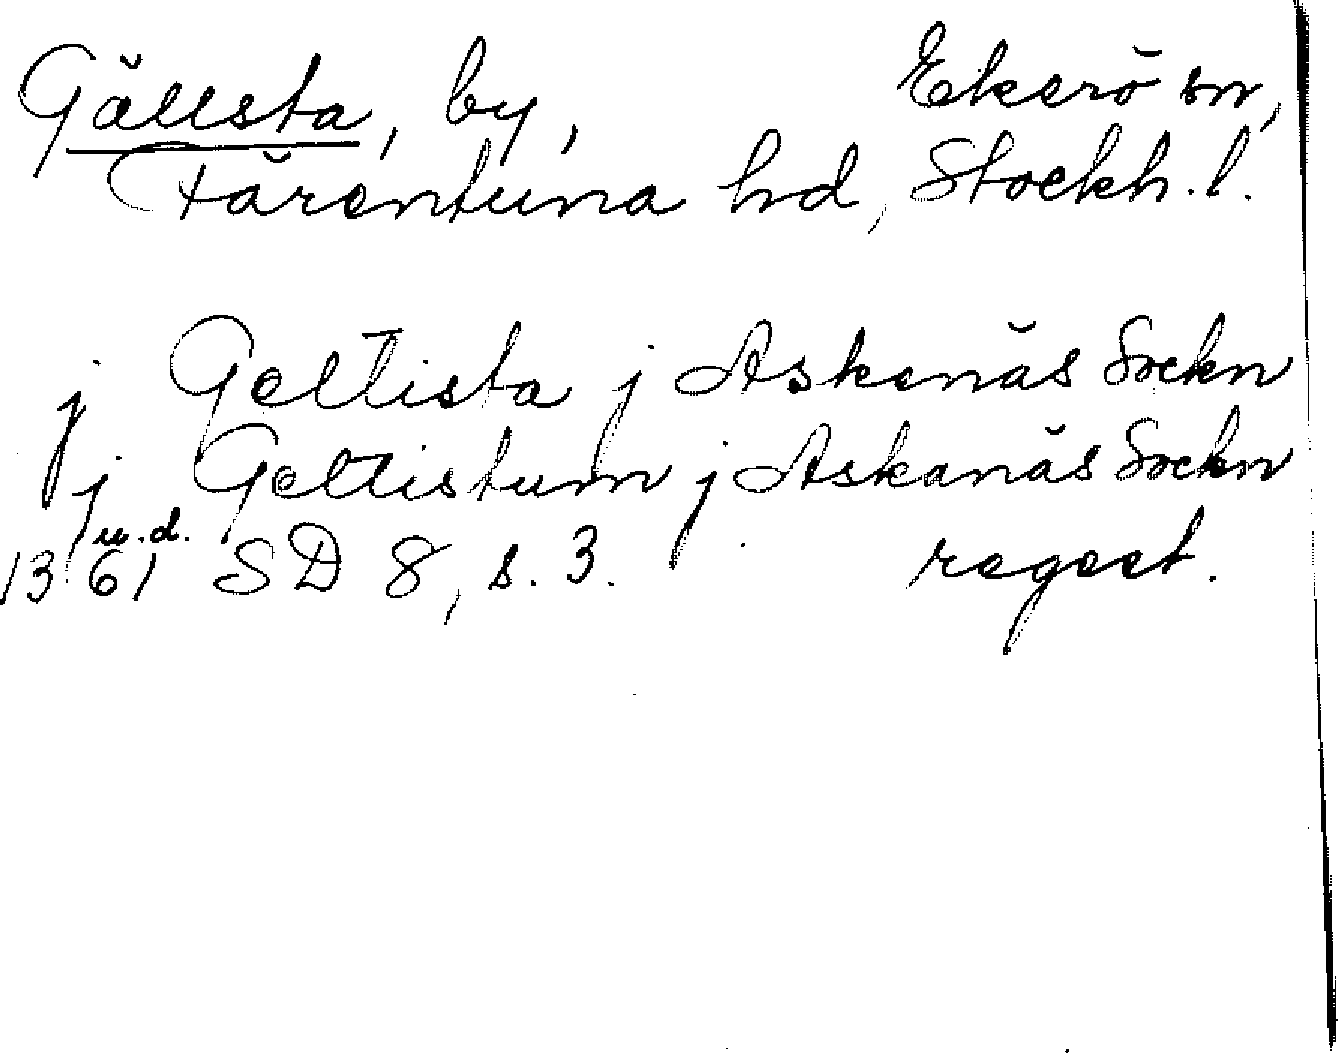 Gällsta, by, Ekerö sn,
Färentuna hd, Stockh. l.
j Geltista j Askenäs Sockn
j Geltistum j Askanäs Sockn
u.d.
1361 SD 8, s. 3. regest.